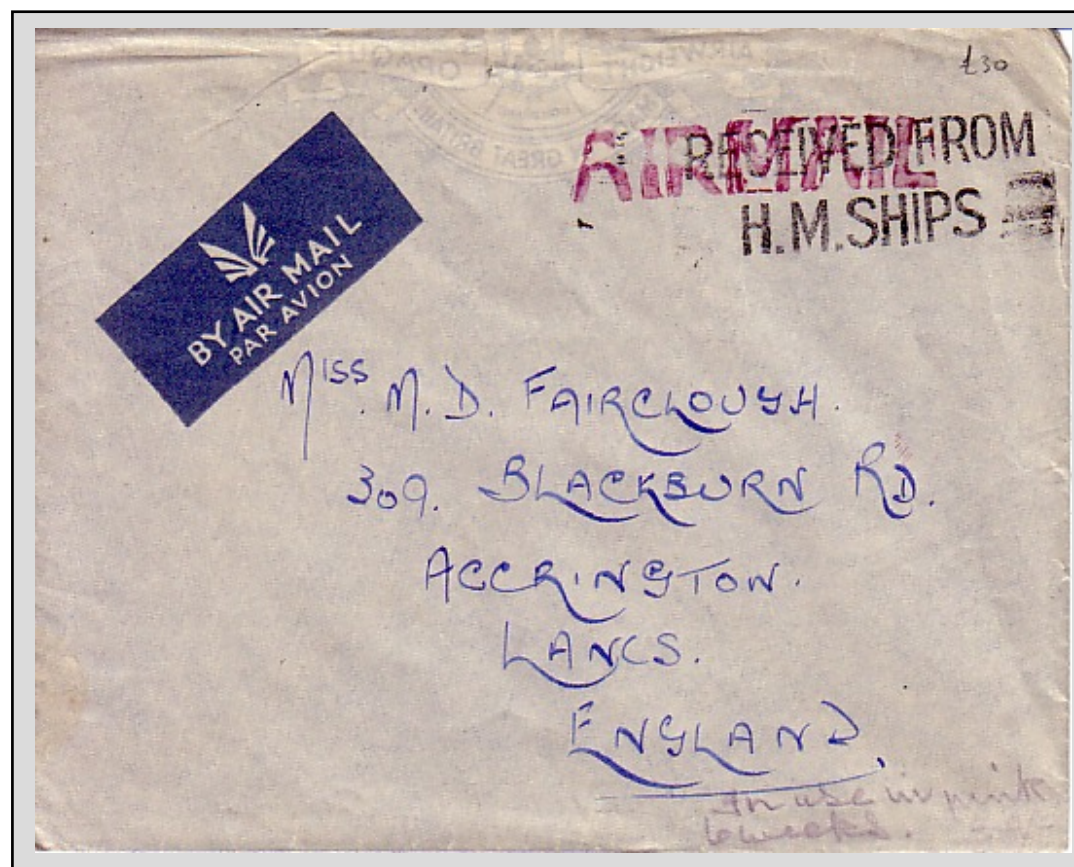 £30
AIRMAIL
RECEIVED FROM
H.M.SHIPS
BY AIR MAIL
PAR AVION
MISS. M. D. FAIRCLOUGH.
309. BLACKBURN RD.
ACCRINGTON.
LANCS.
ENGLAND.
In use in pink
6 weeks.